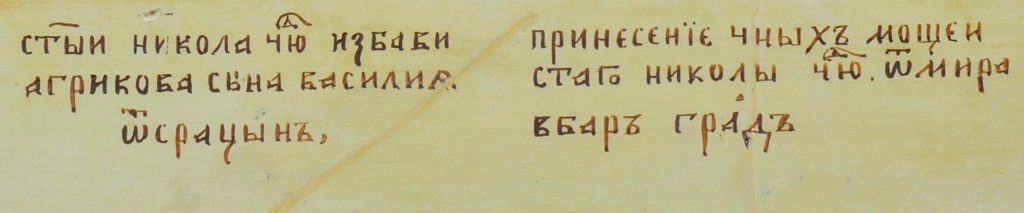 стыи никола чю избави
агрикова сына василия.
ѿсрацынъ,
принесенїе чныхъ мощеи
стаго николы чю. ѿмира
вбаръ градъ